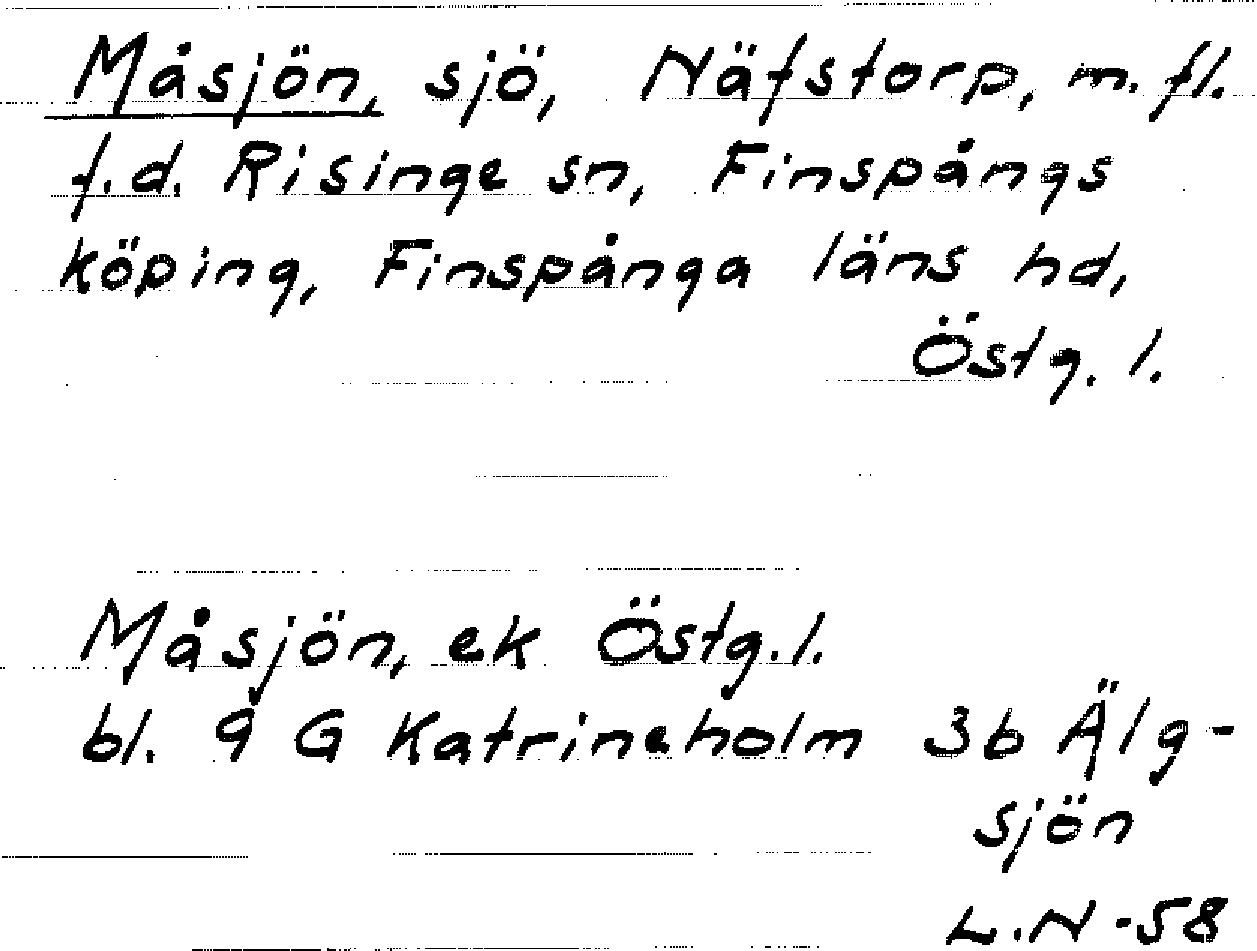 Måsjön, sjö, Näfstorp, m.fl.
f.d. Risinge sn, Finspångs
köping, Finspånga läns hd,
Östg. l.
Måsjön, ek Östg.l.
bl. 9 G Katrineholm 3b Älg-
sjön
L.N -58